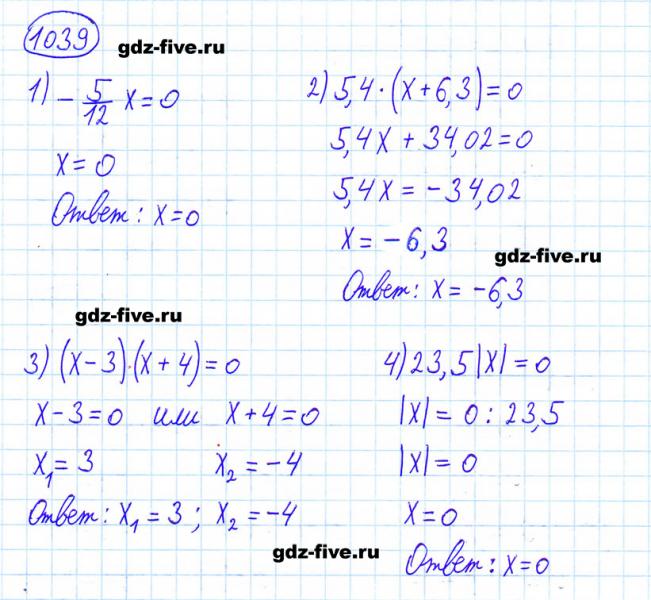 1039 gdz-five.ru
1) - 5/12 x = 0
x = 0
Ответ: x = 0
2) 5,4 · (x + 6,3) = 0
5,4x + 34,02 = 0
5,4x = -34,02
x = -6,3
gdz-five.ru
Ответ: x = -6,3
gdz-five.ru
3) (x - 3)·(x + 4) = 0
x - 3 = 0 или x + 4 = 0
x₁ = 3 x₂ = -4
Ответ: x₁ = 3 ; x₂ = -4
4) 23,5|x| = 0
|x| = 0 : 23,5
|x| = 0
x = 0
Ответ: x = 0
gdz-five.ru